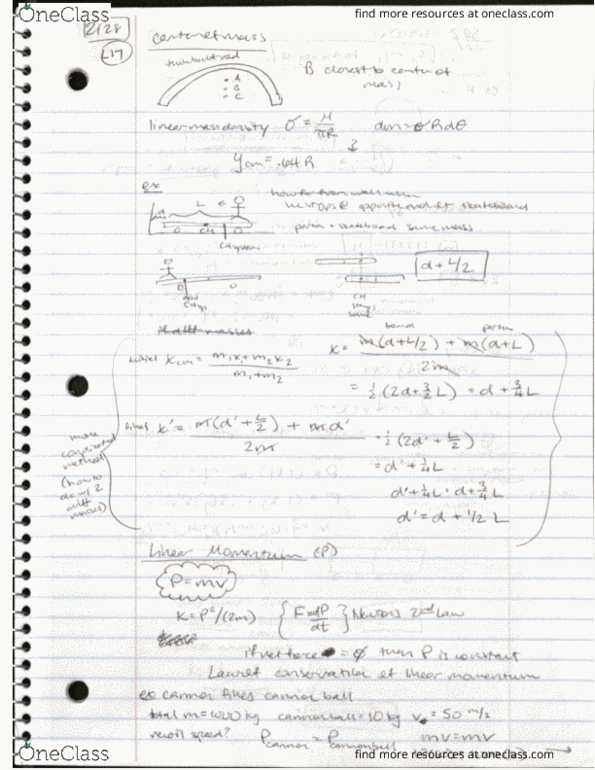 OneClass
find more resources at oneclass.com
2/28
L17
center of mass
thin bent rod
A
B
C
B closest to center of mass
linear mass density σ = M/πR dm = σ R dθ
ycm = .64 R
ex
how far from wall when
he opposite end of skateboard
L
person + skateboard same mass
CM
d + L/2
CM
board person
initial xcm = m1x1 + m2x2 / m1 + m2
x = m(d + L/2) + m(d + L) / 2m
= 1/2 (2d + 3/2 L) = d + 3/4 L
x' = m(d' + L/2) + md' / 2m
= 1/2 (2d' + L/2)
= d' + 1/4 L
d' + 1/4 L = d + 3/4 L
d' = d + 1/2 L
more complicated method
(how to do w/ 2 diff masses)
Linear Momentum (P)
P = mv
K = P²/(2m) { F = dP/dt } Newtons 2nd Law
if net force = 0 then P is constant
Law of conservation of linear momentum
ex cannon fires cannon ball
total m = 1000 kg cannonball = 10 kg v = 50 m/s
recoil speed? Pcannon = Pcannonball mv = mv
OneClass
find more resources at oneclass.com